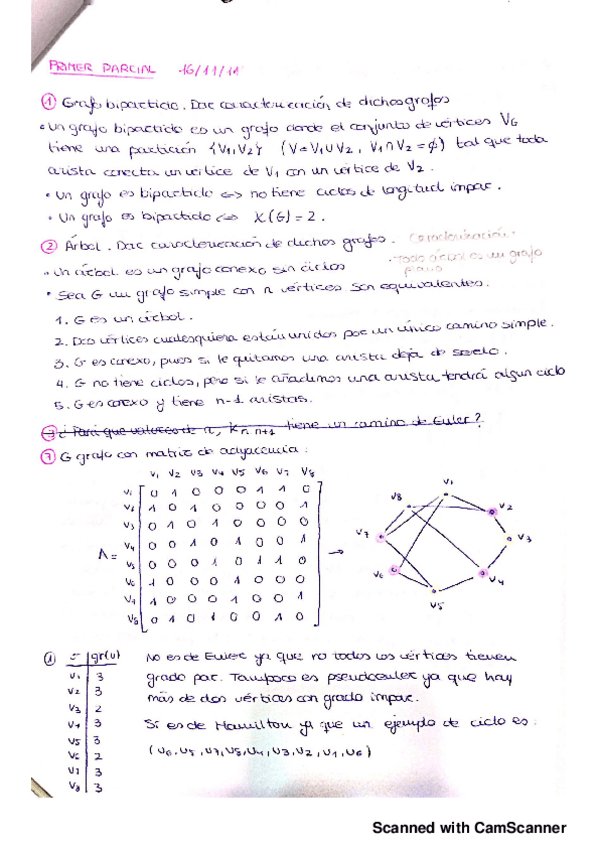 PRIMER PARCIAL 16/11/11
① Grafo bipartido. Dar caracterización de dichos grafos
• Un grafo bipartido es un grafo donde el conjunto de vértices VG
tiene una partición {V1,V2} (V=V1∪V2, V1∩V2=ϕ) tal que toda
arista conecta un vértice de V1 con un vértice de V2.
• Un grafo es bipartido ⇔ no tiene ciclos de longitud impar.
• Un grafo es bipartido ⇔ X(G)=2.
② Árbol. Dar caracterización de dichos grafos. Caracterización.
• Todo árbol es un grafo
plano
• Un árbol es un grafo conexo sin ciclos
• Sea G un grafo simple con n vértices son equivalentes.
1. G es un árbol.
2. Dos vértices cualesquiera están unidos por un único camino simple.
3. G es conexo, pues si le quitamos una arista deja de serlo.
4. G no tiene ciclos, pero si le añadimos una arista tendrá algun ciclo
5. G es conexo y tiene n-1 aristas.
¿Para que valores de n, Kn,n+1 tiene un camino de Euler?
⑦ G grafo con matriz de adyacencia:
V1 V2 V3 V4 V5 V6 V7 V8
V1 0 1 0 0 0 1 1 0
V2 1 0 1 0 0 0 0 1
V3 0 1 0 1 0 0 0 0
A= V4 0 0 1 0 1 0 0 1 →
V5 0 0 0 1 0 1 1 0
V6 1 0 0 0 1 0 0 0
V7 1 0 0 0 1 0 0 1
V8 0 1 0 1 0 0 1 0
V1
V8
V2
V7
V3
V6
V4
V5
① gr(v)
V1 3
V2 3
V3 2
V4 3
V5 3
V6 2
V7 3
V8 3
No es de Euler ya que no todos los vértices tienen
grado par. Tampoco es pseudoeuler ya que hay
más de dos vértices con grado impar.
Si es de Hamilton ya que un ejemplo de ciclo es:
(V6,V5,V7,V8,V4,V3,V2,V1,V6)
Scanned with CamScanner